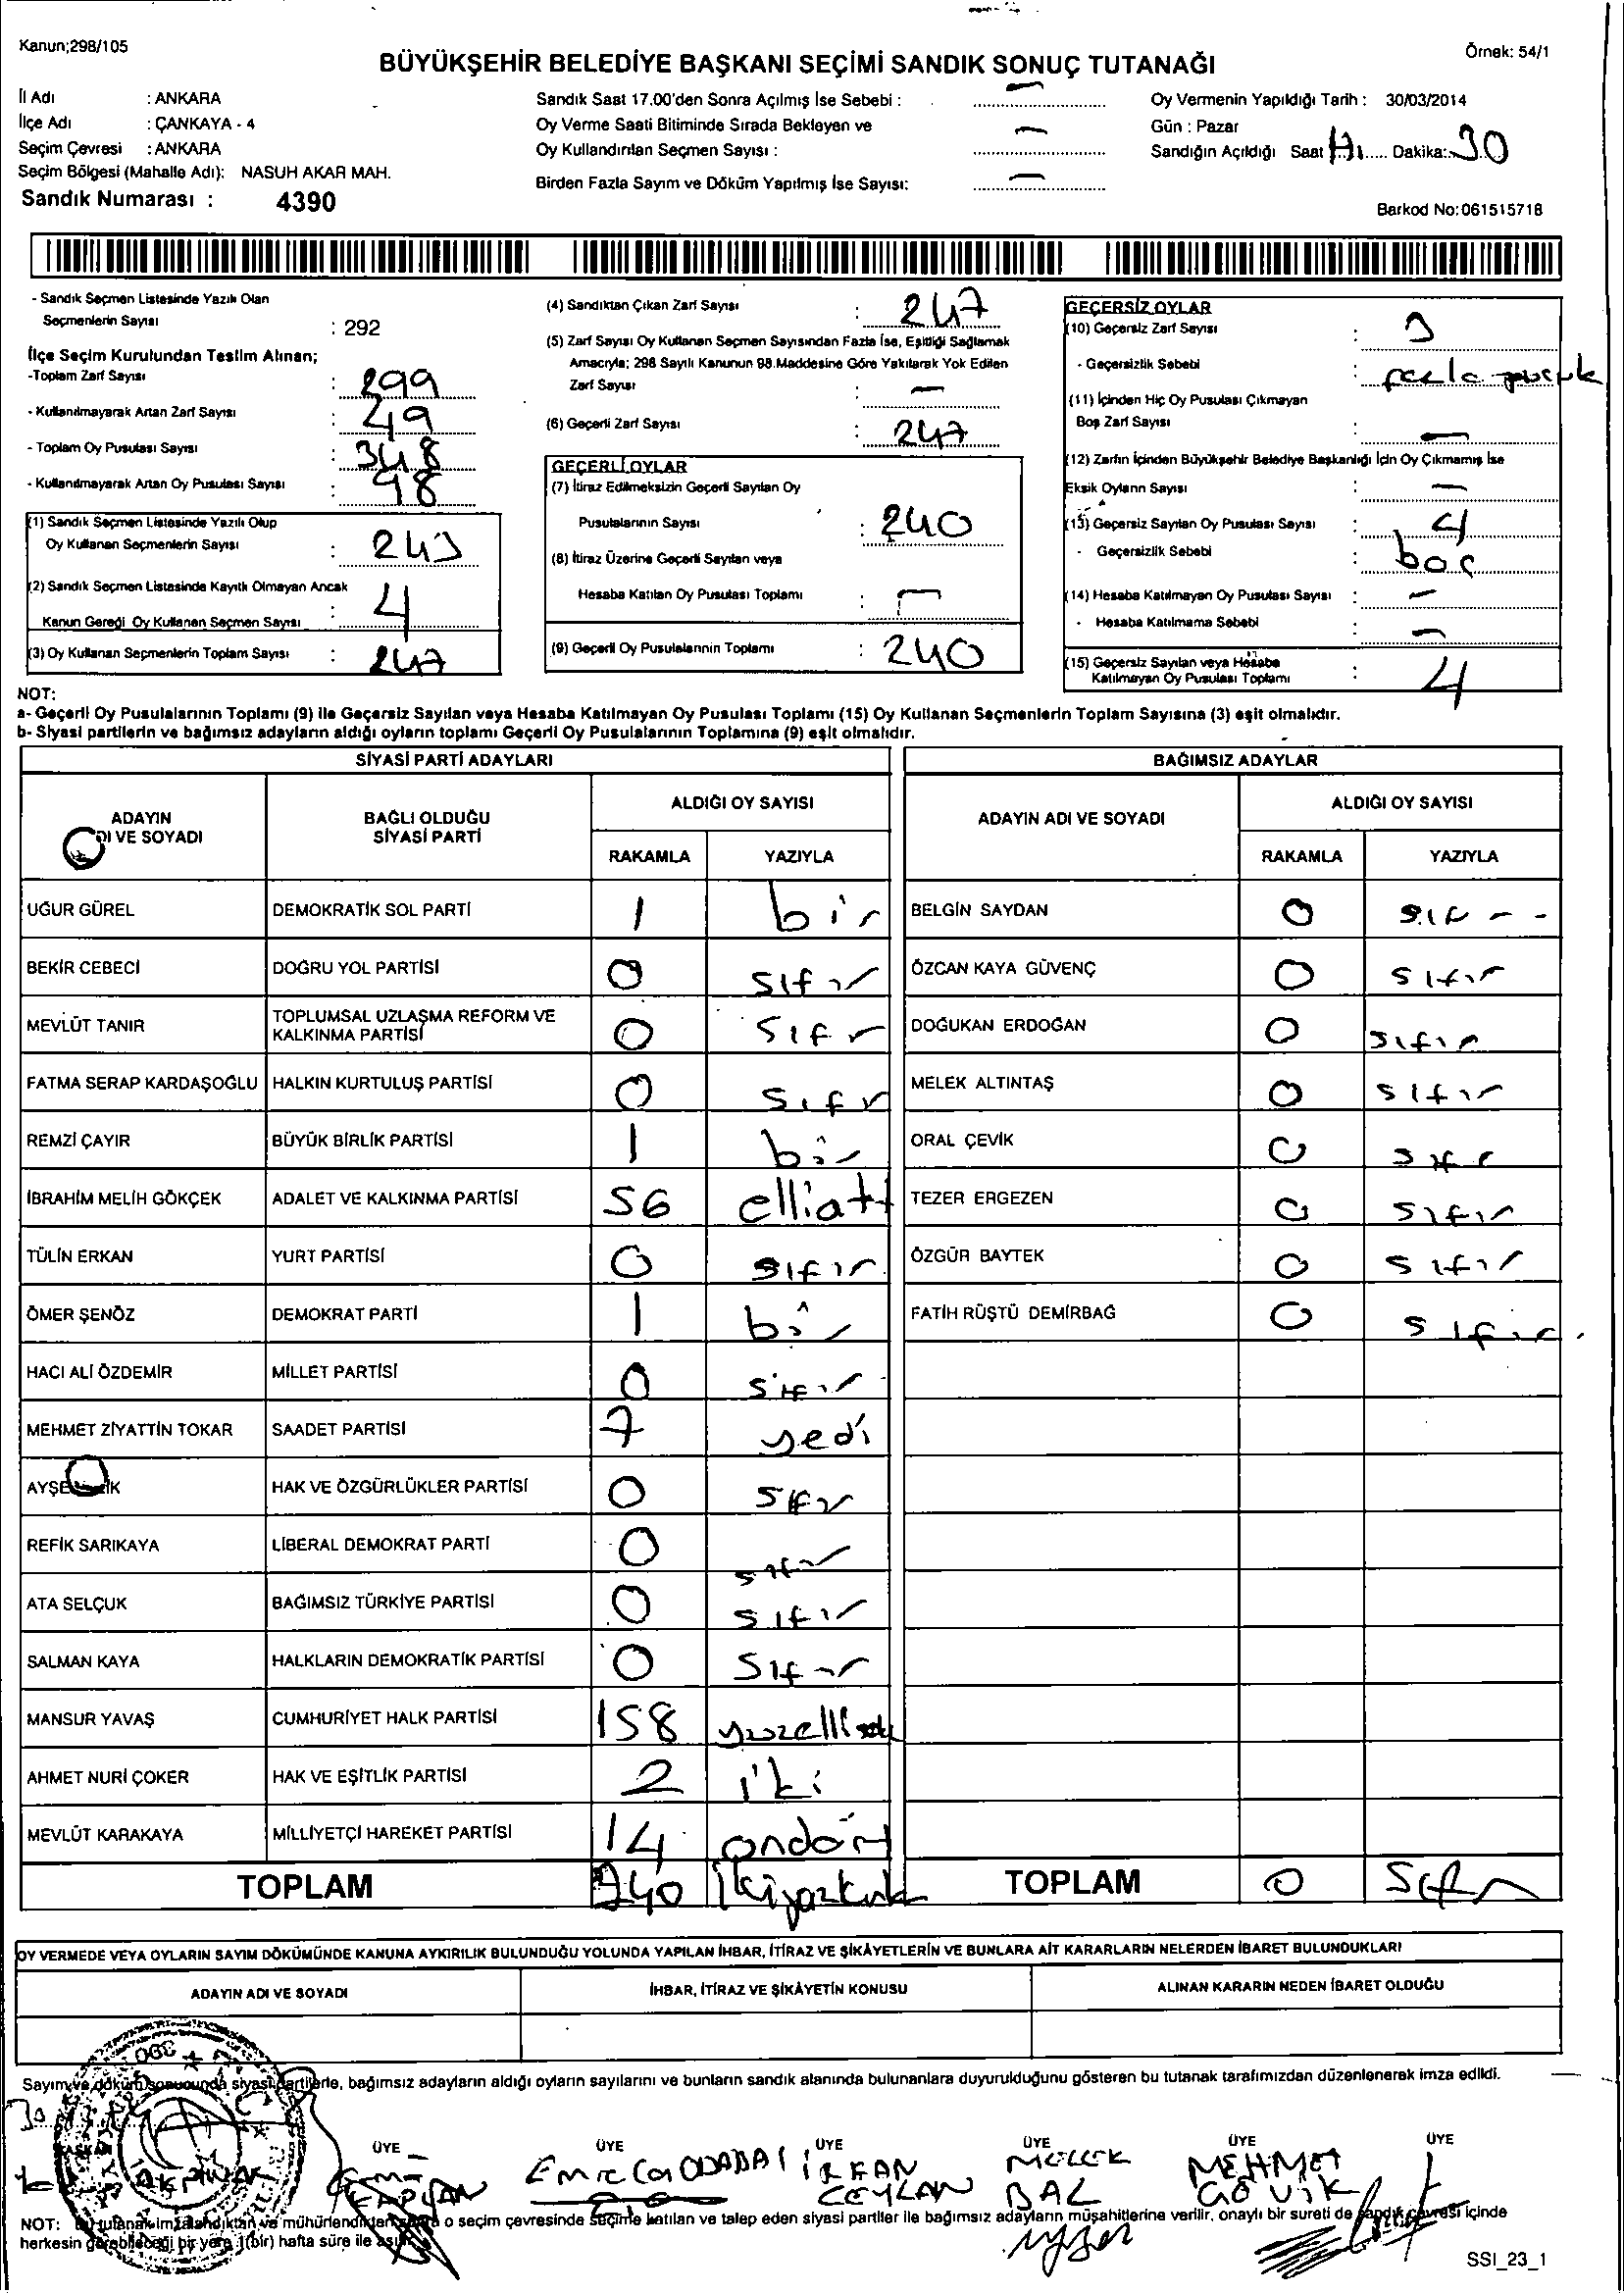 Kanun;298/105
Örnek: 54/1
BÜYÜKŞEHİR BELEDİYE BAŞKANI SEÇİMİ SANDIK SONUÇ TUTANAĞI
İl Adı : ANKARA
İlçe Adı : ÇANKAYA - 4
Seçim Çevresi : ANKARA
Seçim Bölgesi (Mahalle Adı): NASUH AKAR MAH.
Sandık Numarası : 4390
Sandık Saat 17.00'den Sonra Açılmış İse Sebebi : —
Oy Verme Saati Bitiminde Sırada Bekleyen ve
Oy Kullandırılan Seçmen Sayısı : —
Birden Fazla Sayım ve Döküm Yapılmış İse Sayısı: —
Oy Vermenin Yapıldığı Tarih : 30/03/2014
Gün : Pazar
Sandığın Açıldığı Saat Dakika: 30
Barkod No:061515718
- Sandık Seçmen Listesinde Yazılı Olan
Seçmenlerin Sayısı : 292
İlçe Seçim Kurulundan Teslim Alınan;
-Toplam Zarf Sayısı : 299
- Kullanılmayarak Artan Zarf Sayısı : 49
- Toplam Oy Pusulası Sayısı : 348
- Kullanılmayarak Artan Oy Pusulası Sayısı : 98
(1) Sandık Seçmen Listesinde Yazılı Olup
Oy Kullanan Seçmenlerin Sayısı : 243
(2) Sandık Seçmen Listesinde Kayıtlı Olmayan Ancak
Kanun Gereği Oy Kullanan Seçmen Sayısı : 4
(3) Oy Kullanan Seçmenlerin Toplam Sayısı : 247
(4) Sandıktan Çıkan Zarf Sayısı : 247
(5) Zarf Sayısı Oy Kullanan Seçmen Sayısından Fazla İse, Eşitliği Sağlamak
Amacıyla; 298 Sayılı Kanunun 98.Maddesine Göre Yakılarak Yok Edilen
Zarf Sayısı : —
(6) Geçerli Zarf Sayısı : 247
GEÇERLİ OYLAR
(7) İtiraz Edilmeksizin Geçerli Sayılan Oy
Pusulalarının Sayısı : 240
(8) İtiraz Üzerine Geçerli Sayılan veya
Hesaba Katılan Oy Pusulası Toplamı : —
(9) Geçerli Oy Pusulalarının Toplamı : 240
GEÇERSİZ OYLAR
(10) Geçersiz Zarf Sayısı : 3
- Geçersizlik Sebebi : fazla pusula
(11) İçinden Hiç Oy Pusulası Çıkmayan
Boş Zarf Sayısı : —
(12) Zarfın İçinden Büyükşehir Belediye Başkanlığı İçin Oy Çıkmamış İse
Eksik Oyların Sayısı : —
(13) Geçersiz Sayılan Oy Pusulası Sayısı : 4
- Geçersizlik Sebebi : boş
(14) Hesaba Katılmayan Oy Pusulası Sayısı : —
- Hesaba Katılmama Sebebi : —
(15) Geçersiz Sayılan veya Hesaba
Katılmayan Oy Pusulası Toplamı : 4
NOT:
a- Geçerli Oy Pusulalarının Toplamı (9) ile Geçersiz Sayılan veya Hesaba Katılmayan Oy Pusulası Toplamı (15) Oy Kullanan Seçmenlerin Toplam Sayısına (3) eşit olmalıdır.
b- Siyasi partilerin ve bağımsız adayların aldığı oyların toplamı Geçerli Oy Pusulalarının Toplamına (9) eşit olmalıdır.
SİYASİ PARTİ ADAYLARI
ADAYIN DI VE SOYADI
BAĞLI OLDUĞU SİYASİ PARTİ
ALDIĞI OY SAYISI
RAKAMLA YAZIYLA
UĞUR GÜREL DEMOKRATİK SOL PARTİ 1 bir
BEKİR CEBECİ DOĞRU YOL PARTİSİ 0 sıfır
MEVLÜT TANIR TOPLUMSAL UZLAŞMA REFORM VE KALKINMA PARTİSİ 0 sıfr
FATMA SERAP KARDAŞOĞLU HALKIN KURTULUŞ PARTİSİ 0 sıfr
REMZİ ÇAYIR BÜYÜK BİRLİK PARTİSİ 1 bir
İBRAHİM MELİH GÖKÇEK ADALET VE KALKINMA PARTİSİ 56 elliatı
TÜLİN ERKAN YURT PARTİSİ 0 sıfır
ÖMER ŞENÖZ DEMOKRAT PARTİ 1 bir
HACI ALİ ÖZDEMİR MİLLET PARTİSİ 0 sıfır
MEHMET ZİYATTİN TOKAR SAADET PARTİSİ 7 yedi
AYŞE HAK VE ÖZGÜRLÜKLER PARTİSİ 0 sıfır
REFİK SARIKAYA LİBERAL DEMOKRAT PARTİ 0 sıfır
ATA SELÇUK BAĞIMSIZ TÜRKİYE PARTİSİ 0 sıfır
SALMAN KAYA HALKLARIN DEMOKRATİK PARTİSİ 0 sıfır
MANSUR YAVAŞ CUMHURİYET HALK PARTİSİ 158
AHMET NURİ ÇOKER HAK VE EŞİTLİK PARTİSİ 2 iki
MEVLÜT KARAKAYA MİLLİYETÇİ HAREKET PARTİSİ 14 ondört
TOPLAM 240 ikiyüzkırk
BAĞIMSIZ ADAYLAR
ADAYIN ADI VE SOYADI
ALDIĞI OY SAYISI
RAKAMLA YAZIYLA
BELGİN SAYDAN 0 sıf - -
ÖZCAN KAYA GÜVENÇ 0 sıfır
DOĞUKAN ERDOĞAN 0 sıfır
MELEK ALTINTAŞ 0 sıfır
ORAL ÇEVİK 0 sıfr
TEZER ERGEZEN 0 sıfır
ÖZGÜR BAYTEK 0 sıfır
FATİH RÜŞTÜ DEMİRBAĞ 0 sıfır
TOPLAM 0 sıfır
OY VERMEDE VEYA OYLARIN SAYIM DÖKÜMÜNDE KANUNA AYKIRILIK BULUNDUĞU YOLUNDA YAPILAN İHBAR, İTİRAZ VE ŞİKÂYETLERİN VE BUNLARA AİT KARARLARIN NELERDEN İBARET BULUNDUKLARI
ADAYIN ADI VE SOYADI
İHBAR, İTİRAZ VE ŞİKÂYETİN KONUSU
ALINAN KARARIN NEDEN İBARET OLDUĞU
Sayım ve döküm sonucunda siyasi partilerle, bağımsız adayların aldığı oyların sayılarını ve bunların sandık alanında bulunanlara duyurulduğunu gösteren bu tutanak tarafımızdan düzenlenerek imza edildi.
BAŞKAN ÜYE ÜYE ÜYE ÜYE ÜYE ÜYE
AKPINAR
KAPLAN
Emre Can ODABAŞI
İRFAN CEYLAN
MELEK BAL
MEHMET GÖVİK
NOT: Bu tutanak imzalandıktan ve mühürlendikten sonra o seçim çevresinde seçime katılan ve talep eden siyasi partiler ile bağımsız adayların müşahitlerine verilir, onaylı bir sureti de sandık çevresi içinde
herkesin görebileceği bir yere 1(bir) hafta süre ile asılır.
SSI_23_1